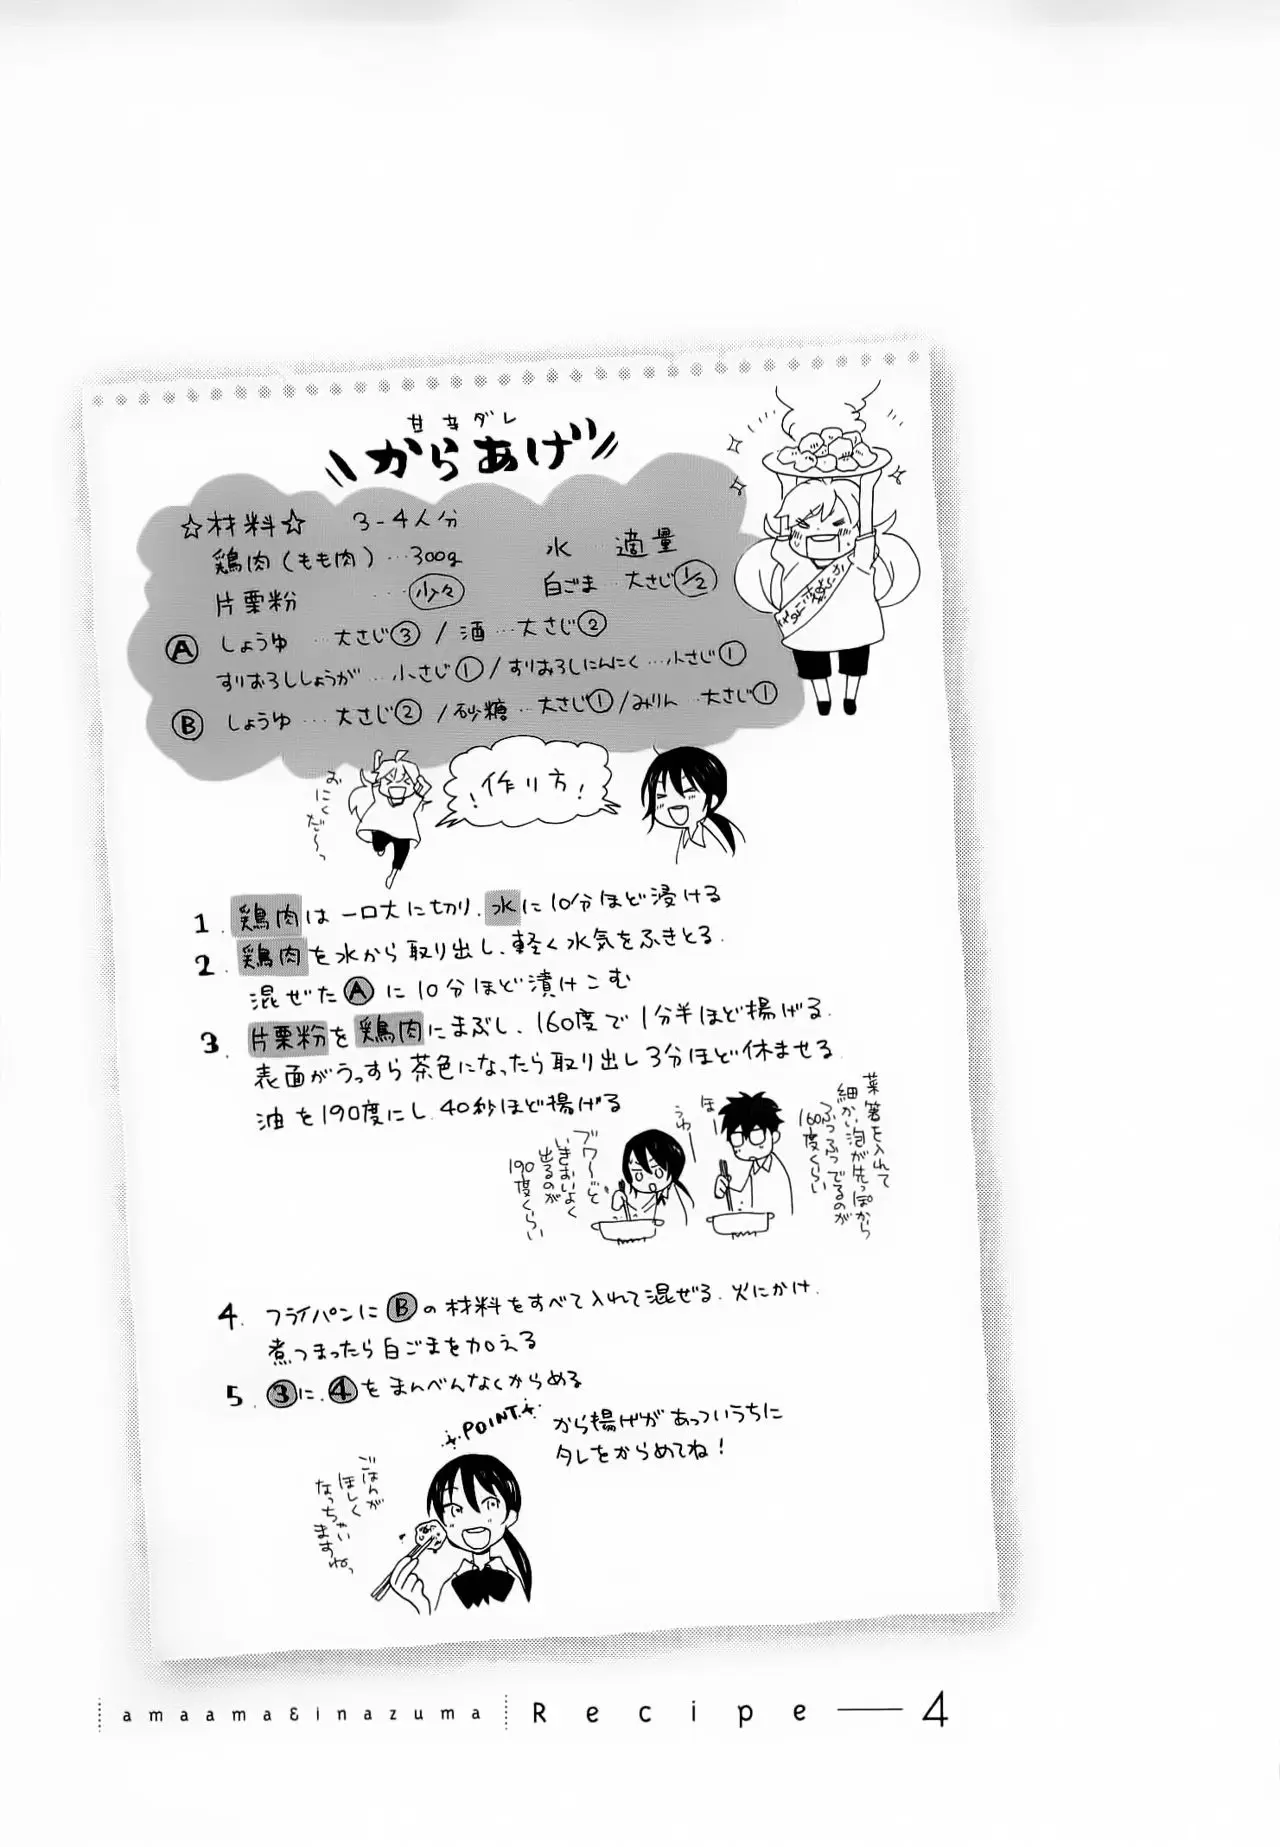 甘辛ダレ
からあげ
☆材料☆ 3-4人分
鶏肉(もも肹)…300g
片栗粉 …少々
水…適量
白ごま…大さじ1/2
Ⓐ しょうゆ…大さじ③/酒…大さじ②
すりおろししょうが…小さじ①/すりおろしにんにく…小さじ①
Ⓑ しょうゆ…大さじ②/砂糖…大さじ①/みりん…大さじ①
おにくだ〜っ
作り方!
1. 鶏肉は一口大に切り、水に10分ほど浸ける
2. 鶏肉を水から取り出し、軽く水気をふきとる。
混ぜたⒶに10分ほど漬けこむ
3. 片栗粉を鶏肉にまぶし、160度で1分半ほど揚げる。
表面がうっすら茶色になったら取り出し3分ほど休ませる
油を190度にし、40秒ほど揚げる
菜箸を入れて
細かい泡が先っぽから
ふつふつでるのが
160度くらい
ほー
うわー
ブワ〜っと
いきおいよく
出るのが
190度くらい
4. フライパンにⒷの材料をすべて入れて混ぜる。火にかけ、
煮つまったら白ごまを加える
5. ③に、④をまんべんなくからめる
POINT
から揚げがあっついうちに
タレをからめてね!
ごはんが
ほしく
なっちゃい
ますね。
amaama&inazuma Recipe — 4